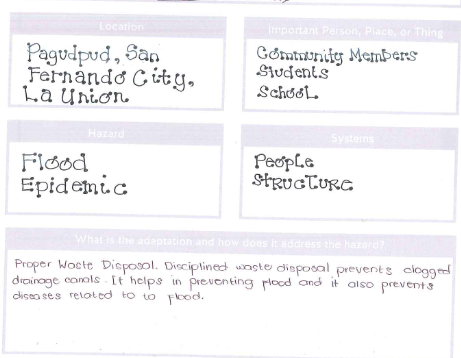 Location
Pagudpud, San
Fernando City,
La Union
Important Person, Place, or Thing
Community Members
Students
School
Hazard
Flood
Epidemic
Systems
People
Structure
What is the adaptation and how does it address the hazard?
Proper Waste Disposal. Disciplined waste disposal prevents clogged
drainage canals. It helps in preventing flood and it also prevents
diseases related to to flood.